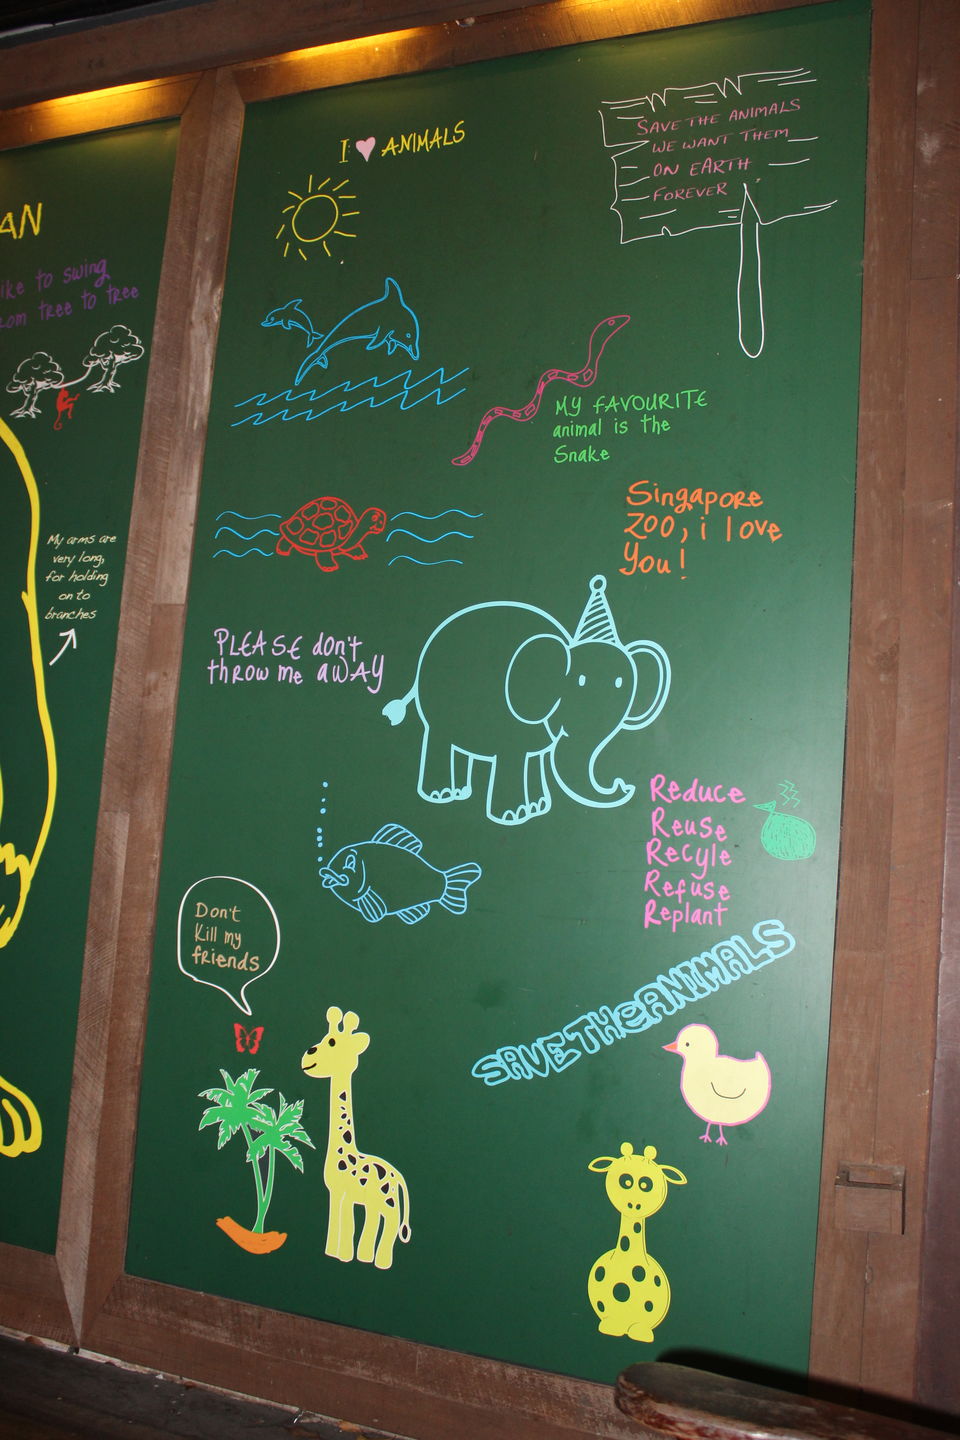 AN
ike to swing
rom tree to tree
My arms are
very long,
for holding
on to
branches
I ANIMALS
SAVE THE ANIMALS
WE WANT THEM
ON EARTH
FOREVER
MY FAVOURITE
animal is the
Snake
Singapore
ZOO, i love
You!
PLEASE don't
throw me aWAY
Reduce
Reuse
Recyle
Refuse
Replant
Don't
Kill my
friends
SAVE THe ANIMALS